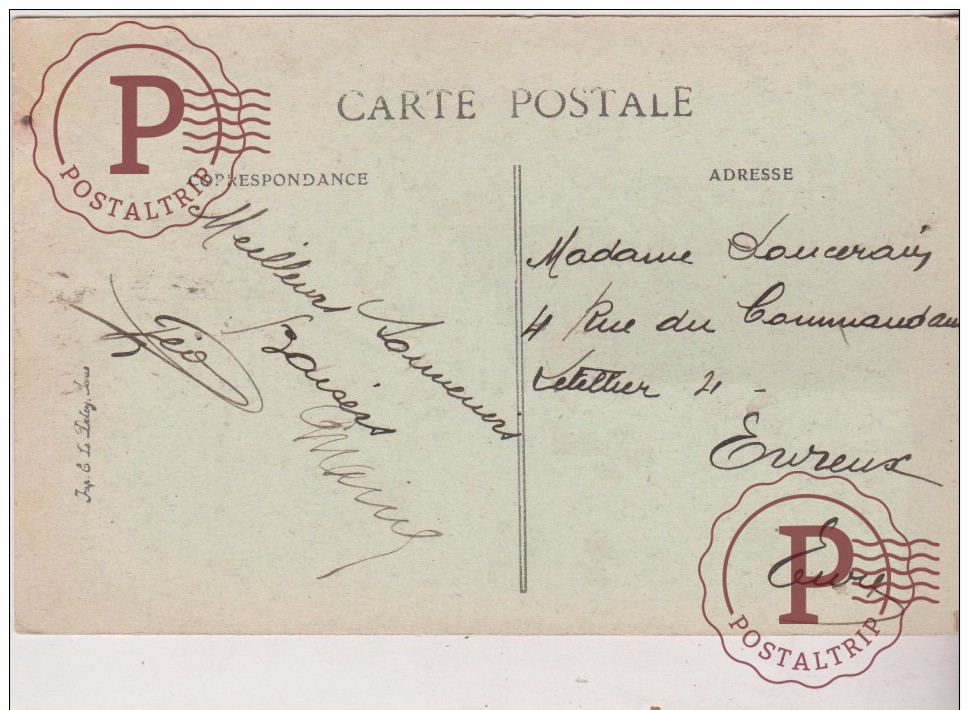 P
POSTALTRIP
CARTE POSTALE
CORRESPONDANCE
ADRESSE
Meilleurs Souvenirs
Baisers
Géo
Imp. E. Le Deley, Paris
Madame
4 Rue du Commandan
Letellier 4 -
Evreux
Eure
P
POSTALTRIP